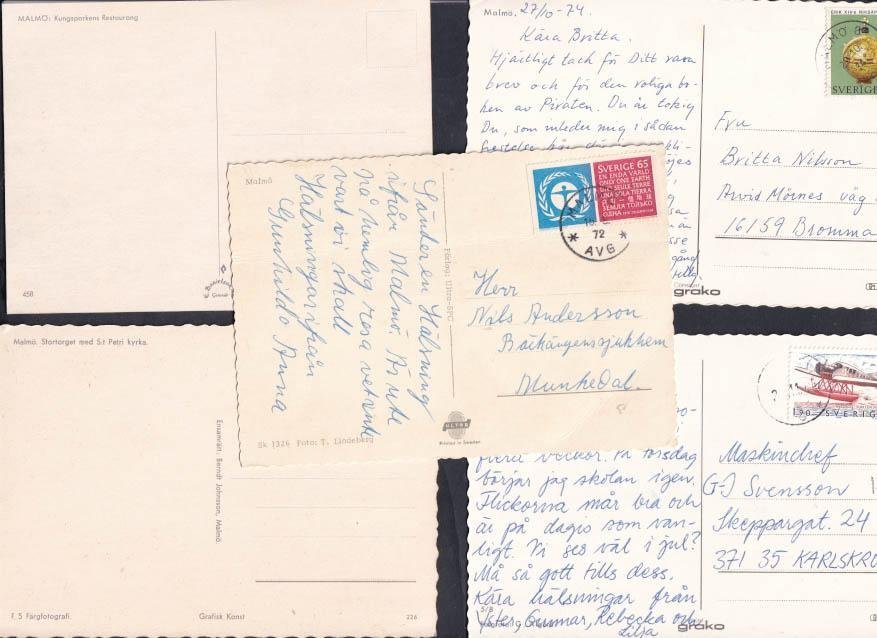 MALMÖ: Kungsparkens Restaurang
458
Malmö. 27/10-74.
Kära Britta.
Hjärtligt tack för Ditt rara
brev och för den roliga bo-
ken av Piraten. Du är tokig
Du, som inleder mig i sådan
SVERIGE
Fru
Britta Nilsson
Arvid Mörnes väg
16159 Bromma
grako
Malmö
Sänder en Hälsning
ifrån Malmö. Är ute
på hemlig resa vet inte
vart vi skall
Hälsningar från
Gunhild o Anna
Förlag: Ultra-SPC
SVERIGE 65
EN ENDA VÄRLD
ONLY ONE EARTH
UNE SEULE TERRE
UNA SOLA TIERRA
72
AVG
Herr
Nils Andersson
Munkedal.
Sk 1326 Foto: T. Lindeberg
ULTRA
Printed in Sweden
Malmö. Stortorget med S:t Petri kyrka.
Ensamrätt: Berndt Johnsson, Malmö.
F. 5 Färgfotografi.
Grafisk Konst
226
190 SVERIGE
flera veckor. På torsdag
börjar jag skolan igen.
Flickorna mår bra och
är på dagis som van-
ligt. Vi ses väl i jul?
Må så gott tills dess.
Kära hälsningar från
Gunnar, Rebecka och
Lilja
Maskinchef
G-J Svensson
Skeppargat. 24
371 35 KARLSKRO
grako